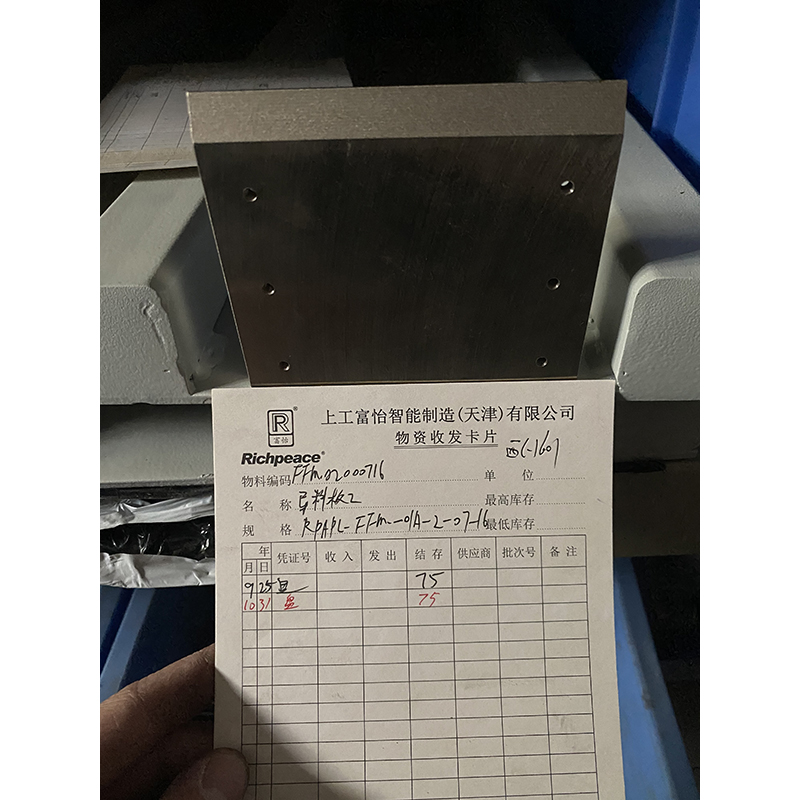 R®
富怡
Richpeace®
上工富怡智能制造(天津)有限公司
物资收发卡片
西C-1601
物料编码 FFM02000716
单 位
名 称 导料板2
最高库存
规 格 RPAPL-FFM-01A-2-07-16
最低库存
年 凭证号 收入 发出 结存 供应商 批次号 备注
月 日
9 25 盘 75
10 31 盘 75